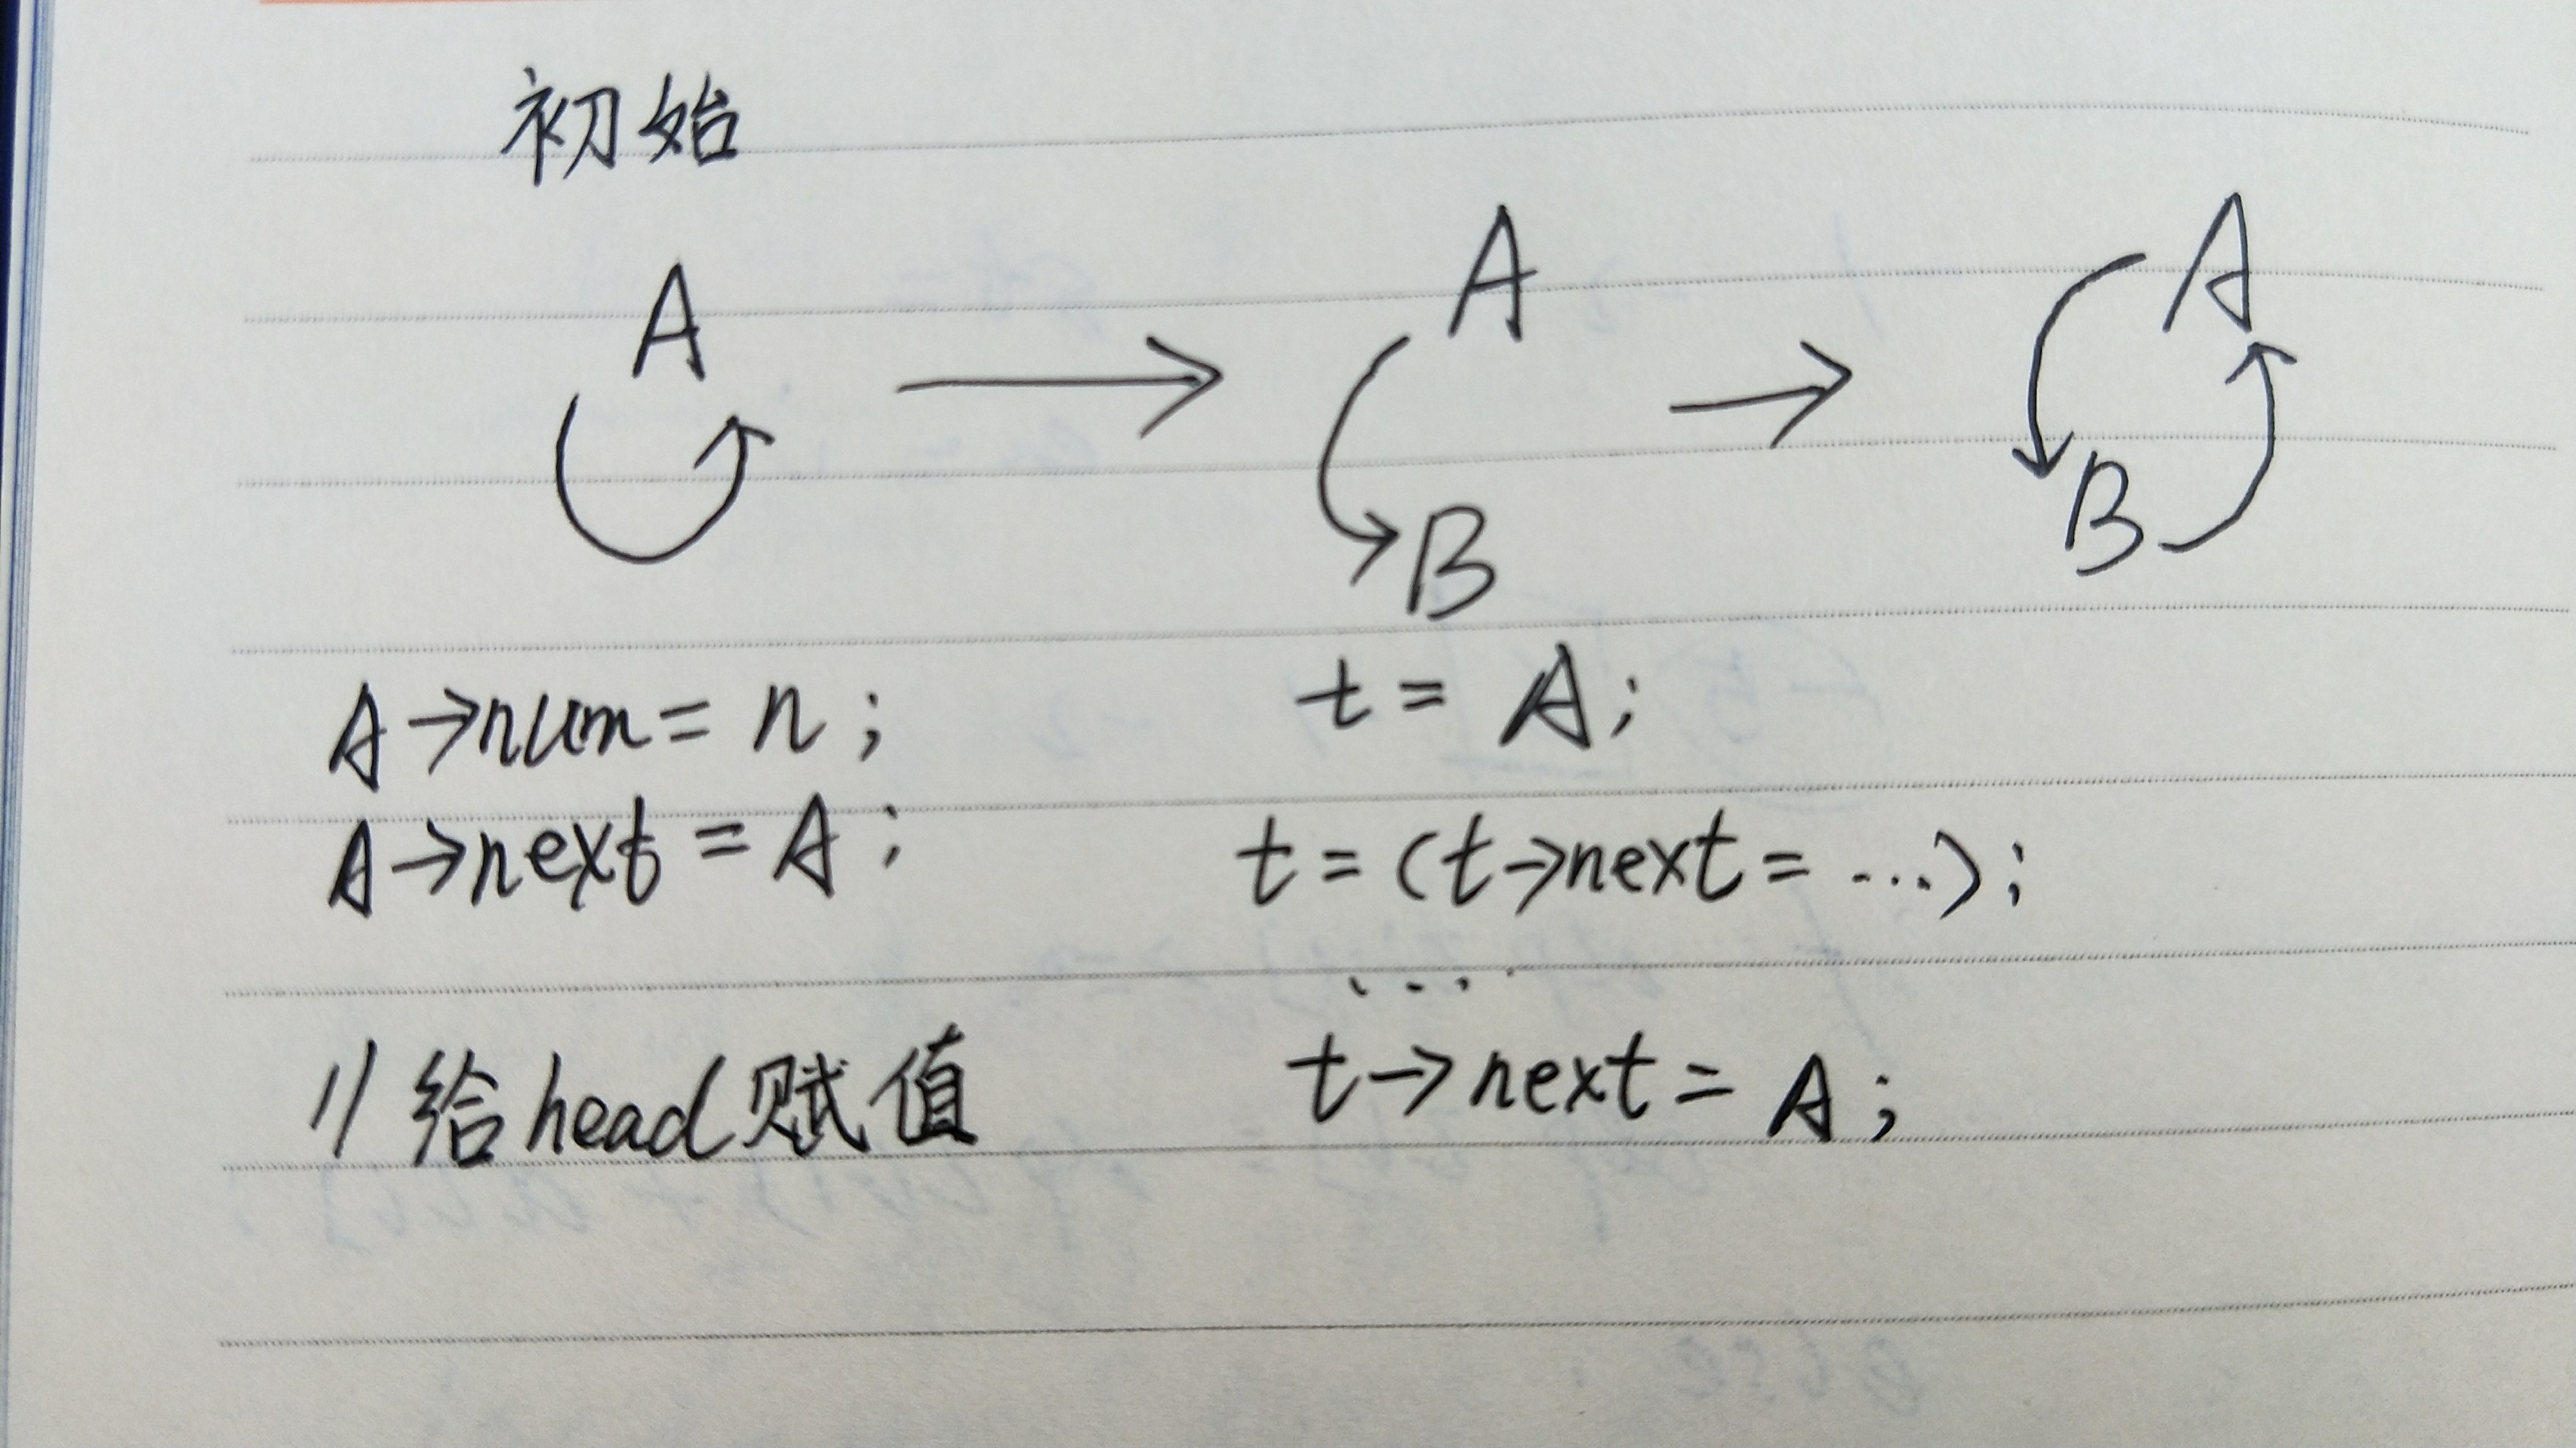 初始
A
A
B
A
B
A→num = n;
A→next = A;
//给head赋值
t = A;
t = (t→next = ...);
...
t→next = A;